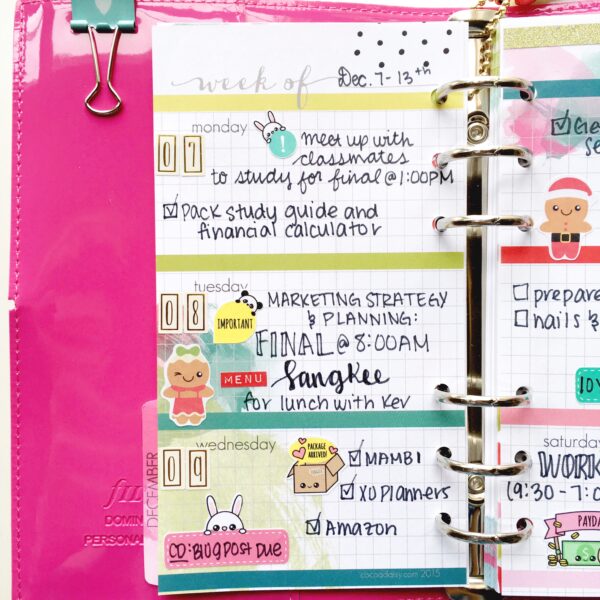 week of Dec. 7-13th
monday
07
! meet up with
classmates
to study for final @ 1:00PM
pack study guide and
financial calculator
tuesday
08
IMPORTANT
MARKETING STRATEGY
& PLANNING:
FINAL @ 8:00AM
MENU SangKee
for lunch with Kev
wednesday
09
PACKAGE
ARRIVED!
MAMBI
XO Planners
Amazon
CD: BLOG POST DUE
cocoadaisy.com 2015
DECEMBER
DOMIN
PERSONA
prepare
nails &
saturday
WORK
(9:30 - 7:0
PAYDA